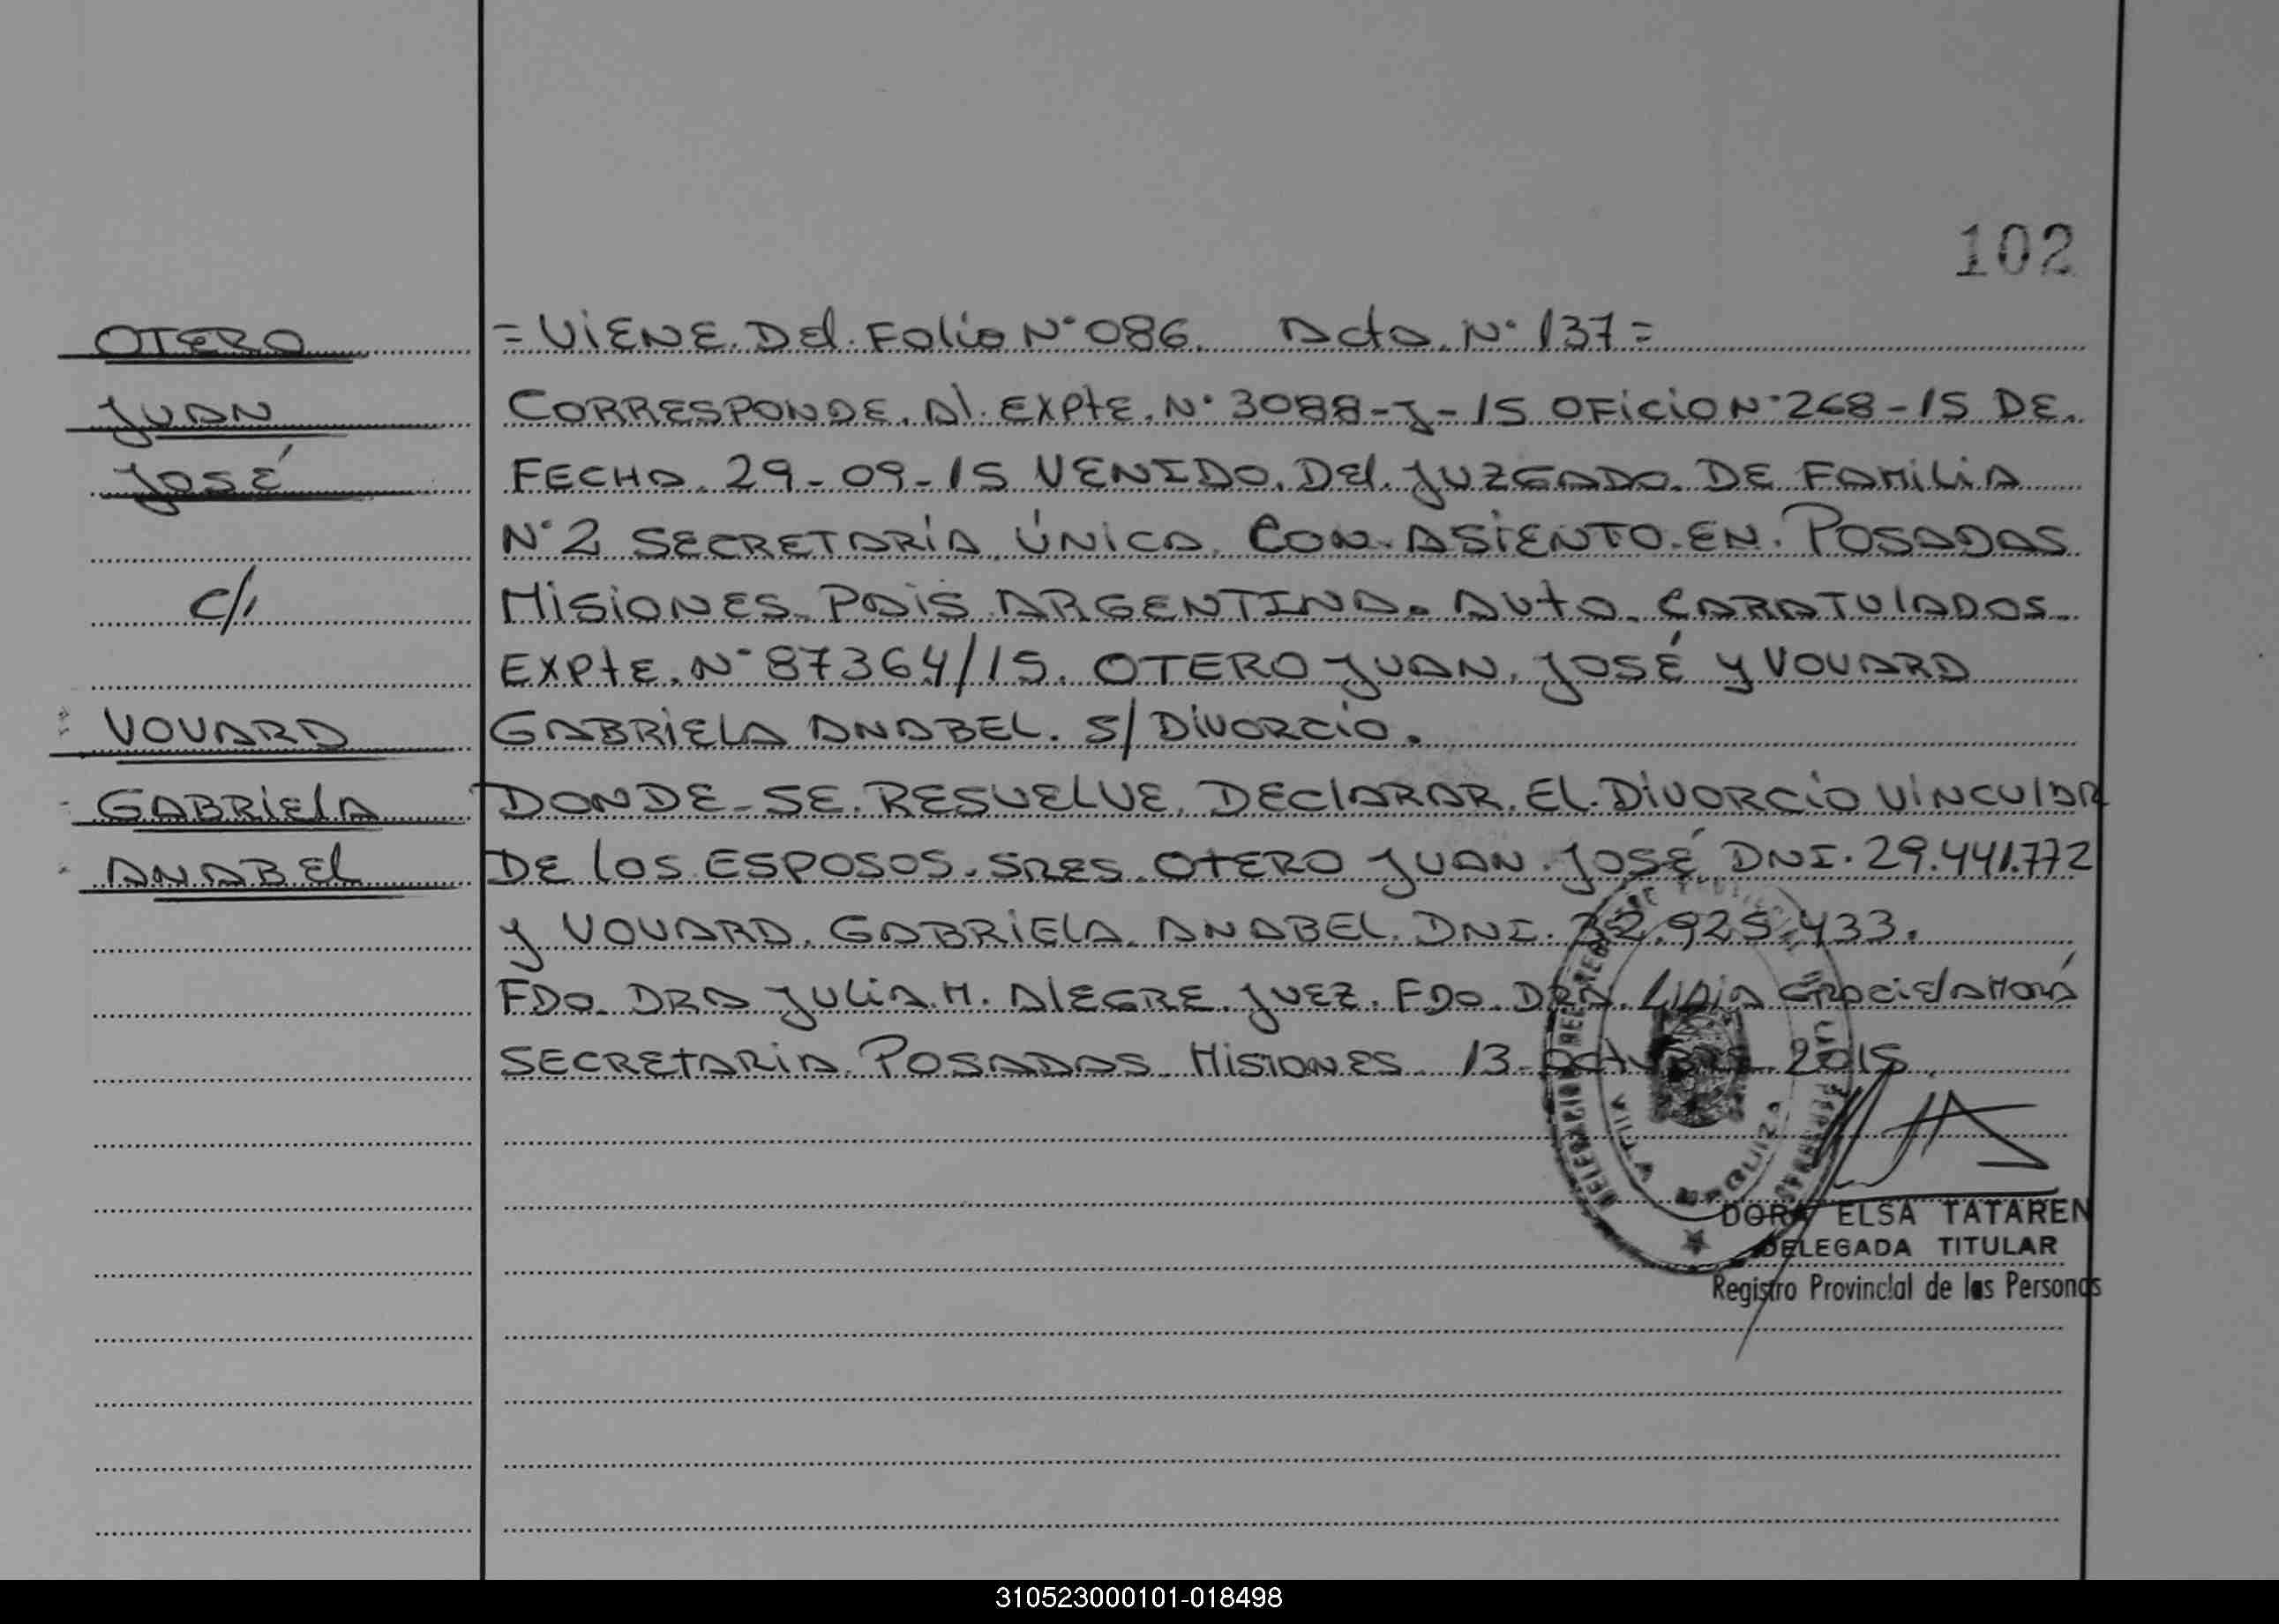 102
OTERO
JUAN
JOSÉ
C/.
VOUARD
GABRIELA
ANABEL
= VIENE. DEL. FOLIO N° 086. ACTA. N° 137 =
CORRESPONDE. AL. EXPTE. N° 3088-J-15 OFICIO N° 268-15 DE.
FECHA. 29-09-15 VENIDO. DEL. JUZGADO. DE FAMILIA
N° 2 SECRETARÍA ÚNICA. CON. ASIENTO. EN. POSADAS
MISIONES. PAIS ARGENTINA. AUTO. CARATULADOS.
EXPTE. N° 87364/15. OTERO JUAN. JOSÉ y VOUARD
GABRIELA ANABEL. S/ DIVORCIO.
DONDE. SE. RESUELVE. DECLARAR. EL. DIVORCIO VINCULAR
DE LOS ESPOSOS. SRES. OTERO JUAN. JOSÉ DNI. 29.441.772
y VOUARD. GABRIELA. ANABEL. DNI. 32.925.433.
FDO. DRA JULIA. M. ALEGRE. JUEZ. FDO. DRA. LIDIA GRACIELA MORÁ
SECRETARIA POSADAS MISIONES. 13-OCTUBRE-2015.
VILLA URQUIZA
DORA ELSA TATAREN
DELEGADA TITULAR
Registro Provincial de las Personas
310523000101-018498